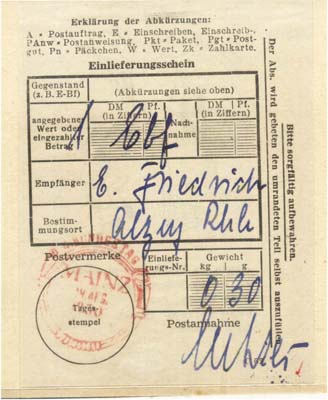 Erklärung der Abkürzungen:
A = Postauftrag, E = Einschreiben, Einschreib-
PAnw = Postanweisung, Pkt = Paket, Pgt = Post-
gut, Pn = Päckchen, W = Wert, Zk = Zahlkarte.
Einlieferungsschein
Gegenstand
(z. B. E-Bf)
(Abkürzungen siehe oben)
DM
(in Ziffern)
Pf.
DM
(in Ziffern)
Pf.
angegebener
Wert oder
eingezahlter
Betrag
1 Ebf
Nach-
nahme
Empfänger
E. Friedrich
Bestim-
mungsort
Alzey Rhh
Postvermerke
Einliefe-
rungs-Nr.
Gewicht
kg
g
0 30
MAINZ
Tages-
stempel
Postannahme
Der Abs. wird gebeten den umrandeten Teil selbst auszufüllen
Bitte sorgfältig aufbewahren.